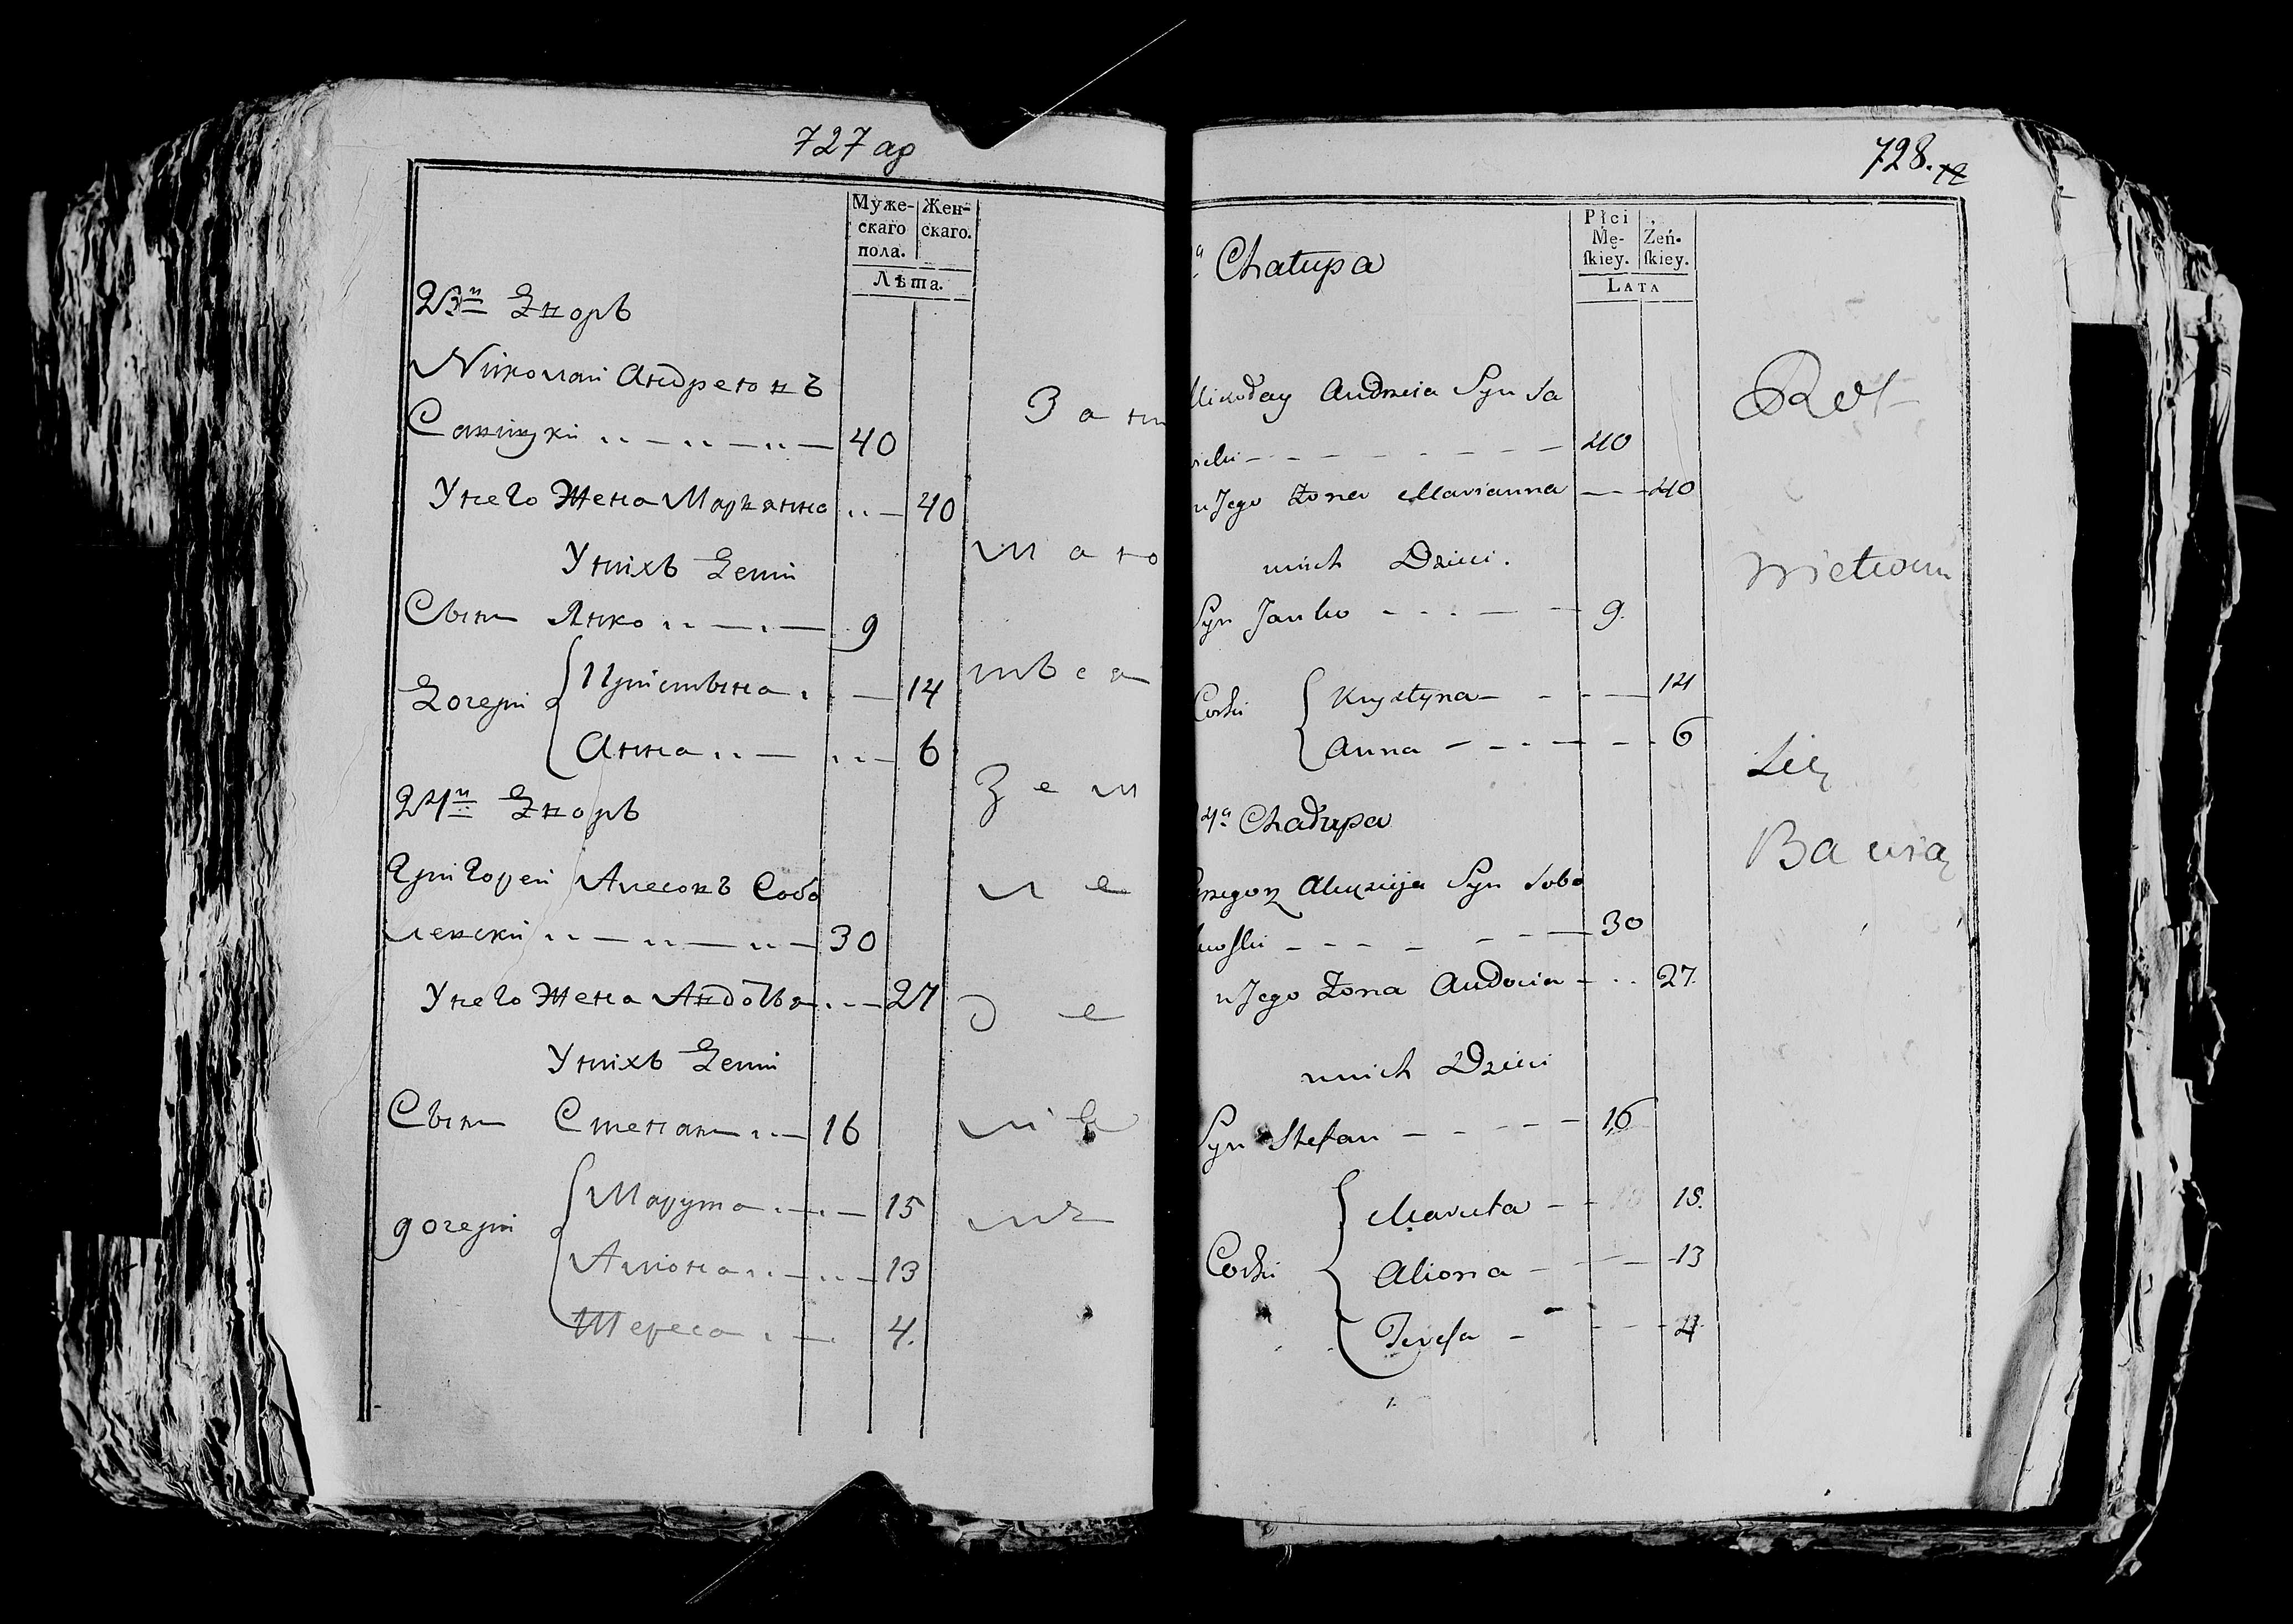 727 ар
Муже-
скаго
пола.
Жен-
скаго.
Лѣта.
23й Дворъ
Николаи Андреювъ
Савицки 40
У него Жена Маръянна 40
У нихъ Дети
Сынъ Янко 9
Дочери
Кристына 14
Анна 6
24й Дворъ
Григореи Алесовъ Собо
левски 30
У него Жена Авдотья 27
У нихъ Дети
Сынъ Степанъ 16
дочери
Марута 15
Алiона 13
Тереса 4.
За ни
м а ю
тъ с я
з е м
л е
д е
728.
Chałupa
Płci
Mę-
ſkiey.
Żeń-
ſkiey.
LATA
Mikołay Andrzeia Syn Sa
wicki 40
u Jego Żona Marianna 40
u nich Dzieci.
Syn Janko 9.
Corki
Krystyna 14
Anna 6
4a Chałupa
Grzegorz Alexieja Syn Sobo
lewſki 30
u Jego Żona Audocia 27.
u nich Dzieci
Syn Stefan 16
Corki
Maruta 15.
Aliona 13
Tereſa 4
Rol
nictwem
Się
Bawią